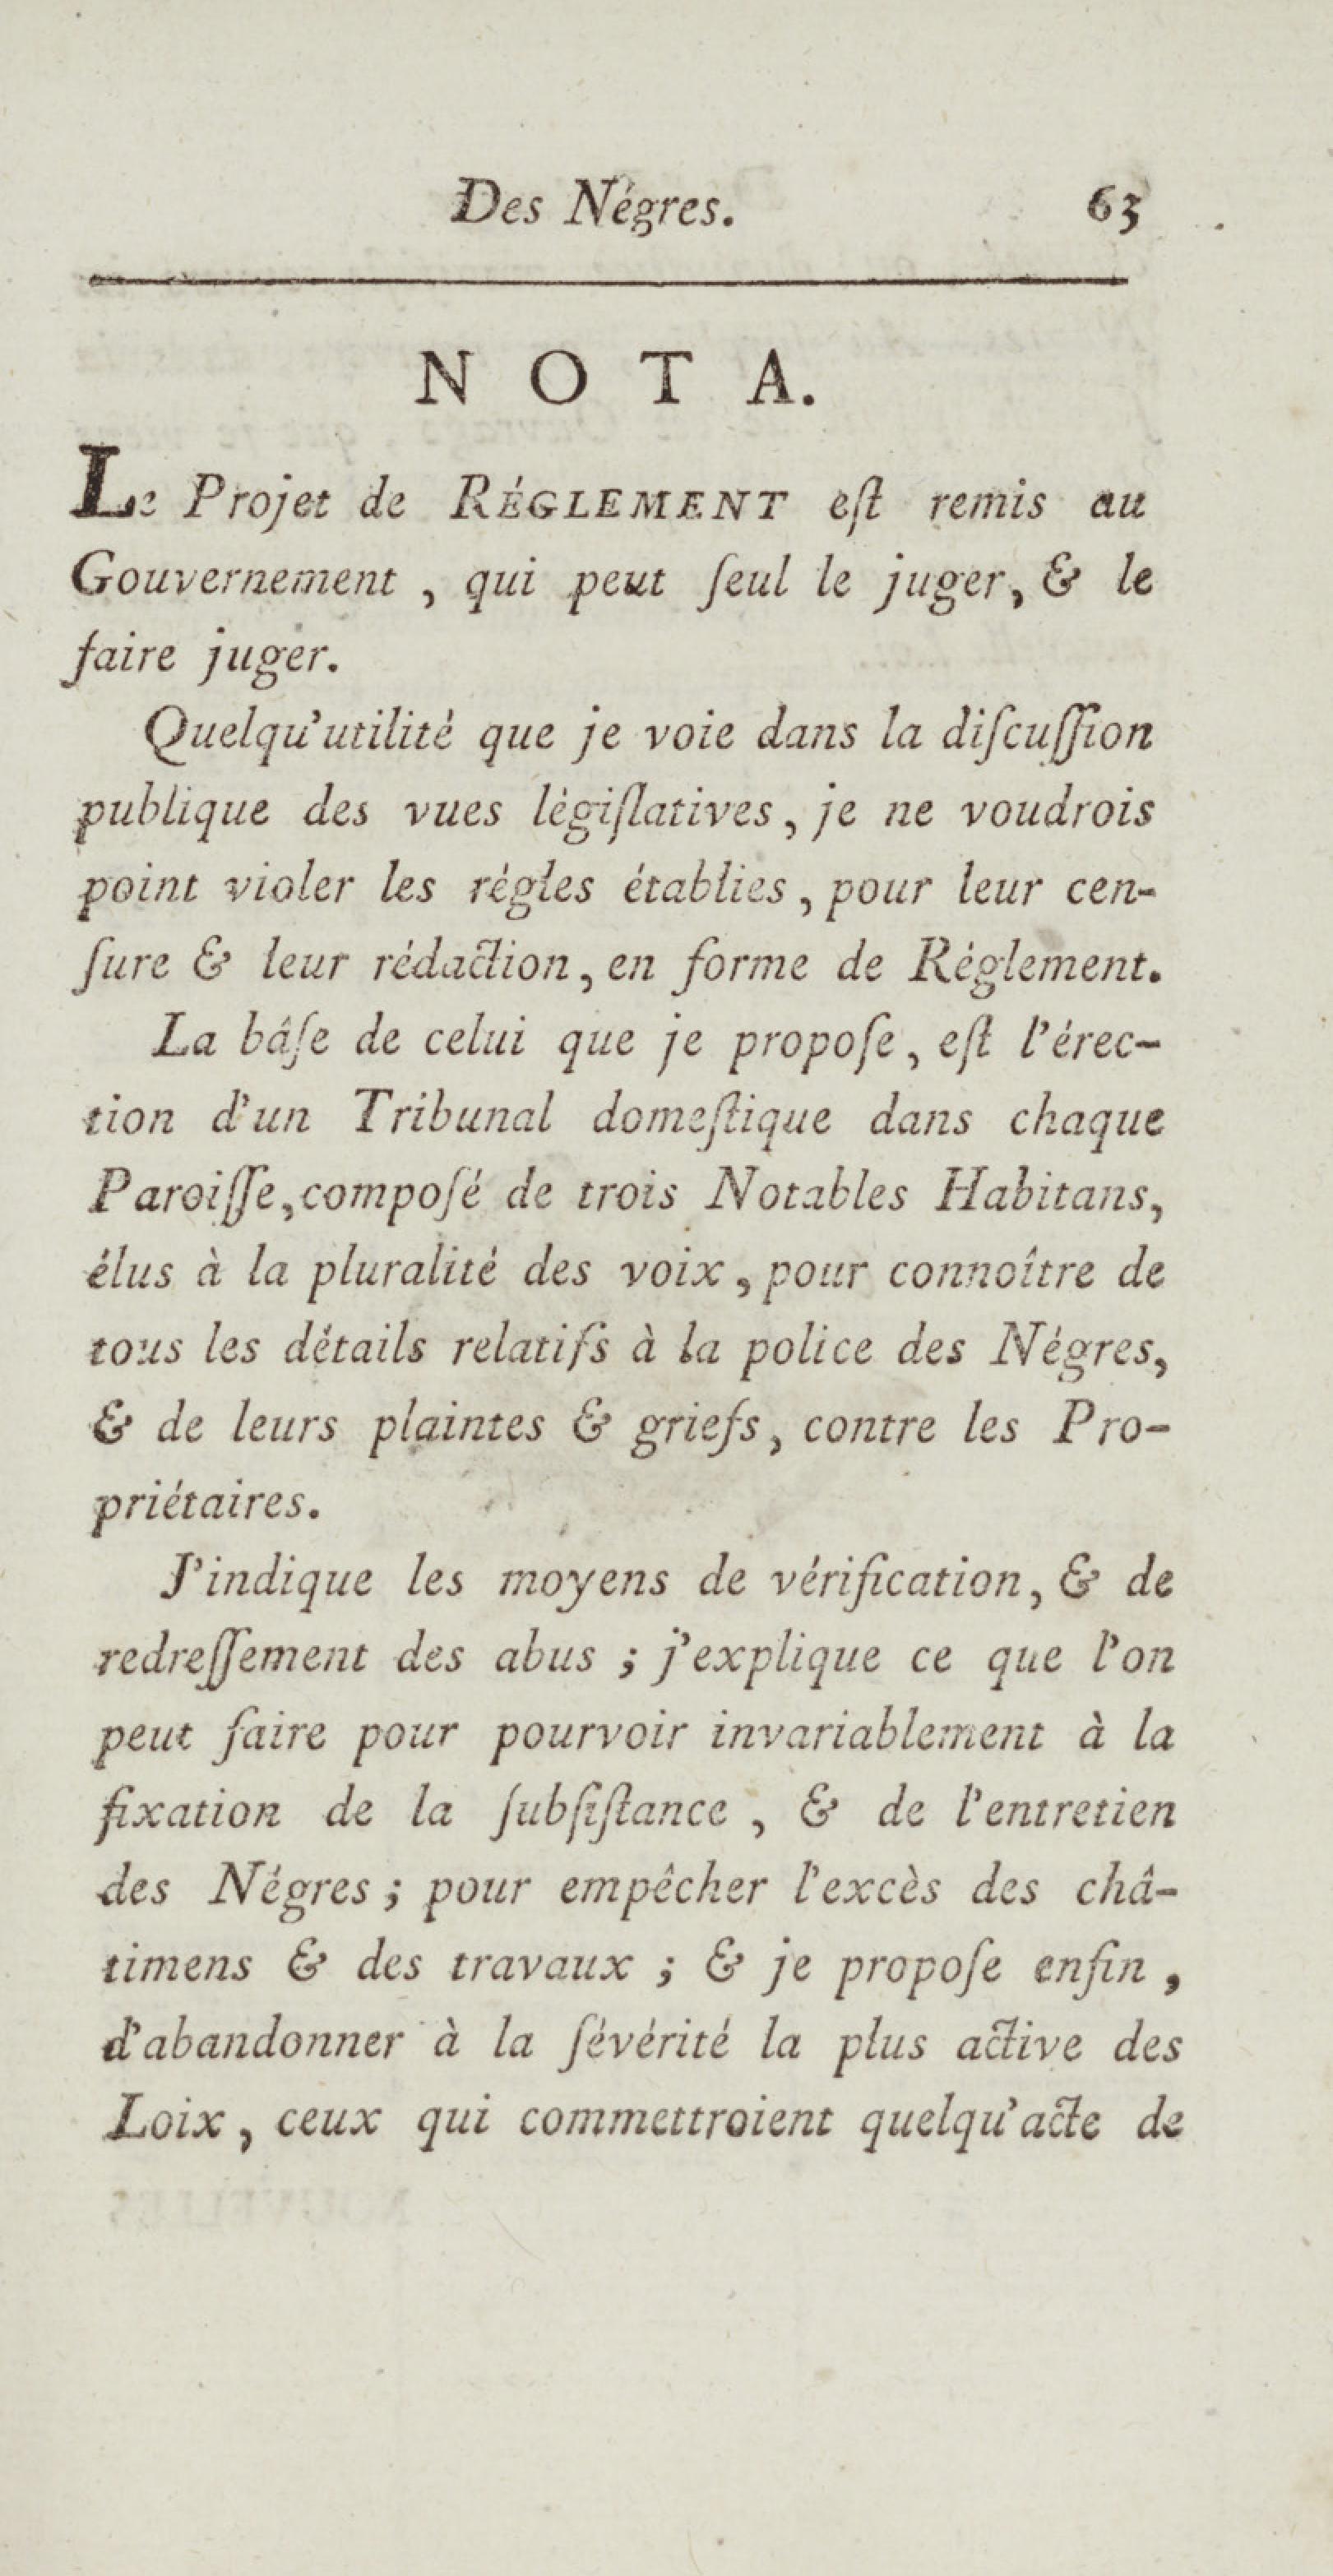 Des Négres. 63
NOTA.
Le Projet de RÉGLEMENT eſt remis au
Gouvernement, qui peut ſeul le juger, & le
faire juger.
Quelqu'utilité que je voie dans la diſcuſſion
publique des vues légiſlatives, je ne voudrois
point violer les régles établies, pour leur cen-
ſure & leur rédaction, en forme de Réglement.
La bâſe de celui que je propoſe, eſt l'érec-
tion d'un Tribunal domeſtique dans chaque
Paroiſſe, compoſé de trois Notables Habitans,
élus à la pluralité des voix, pour connoître de
tous les détails relatifs à la police des Négres,
& de leurs plaintes & griefs, contre les Pro-
priétaires.
J'indique les moyens de vérification, & de
redreſſement des abus ; j'explique ce que l'on
peut faire pour pourvoir invariablement à la
fixation de la ſubſiſtance, & de l'entretien
des Négres ; pour empêcher l'excès des châ-
timens & des travaux ; & je propoſe enfin,
d'abandonner à la ſévérité la plus active des
Loix, ceux qui commettroient quelqu'acte de